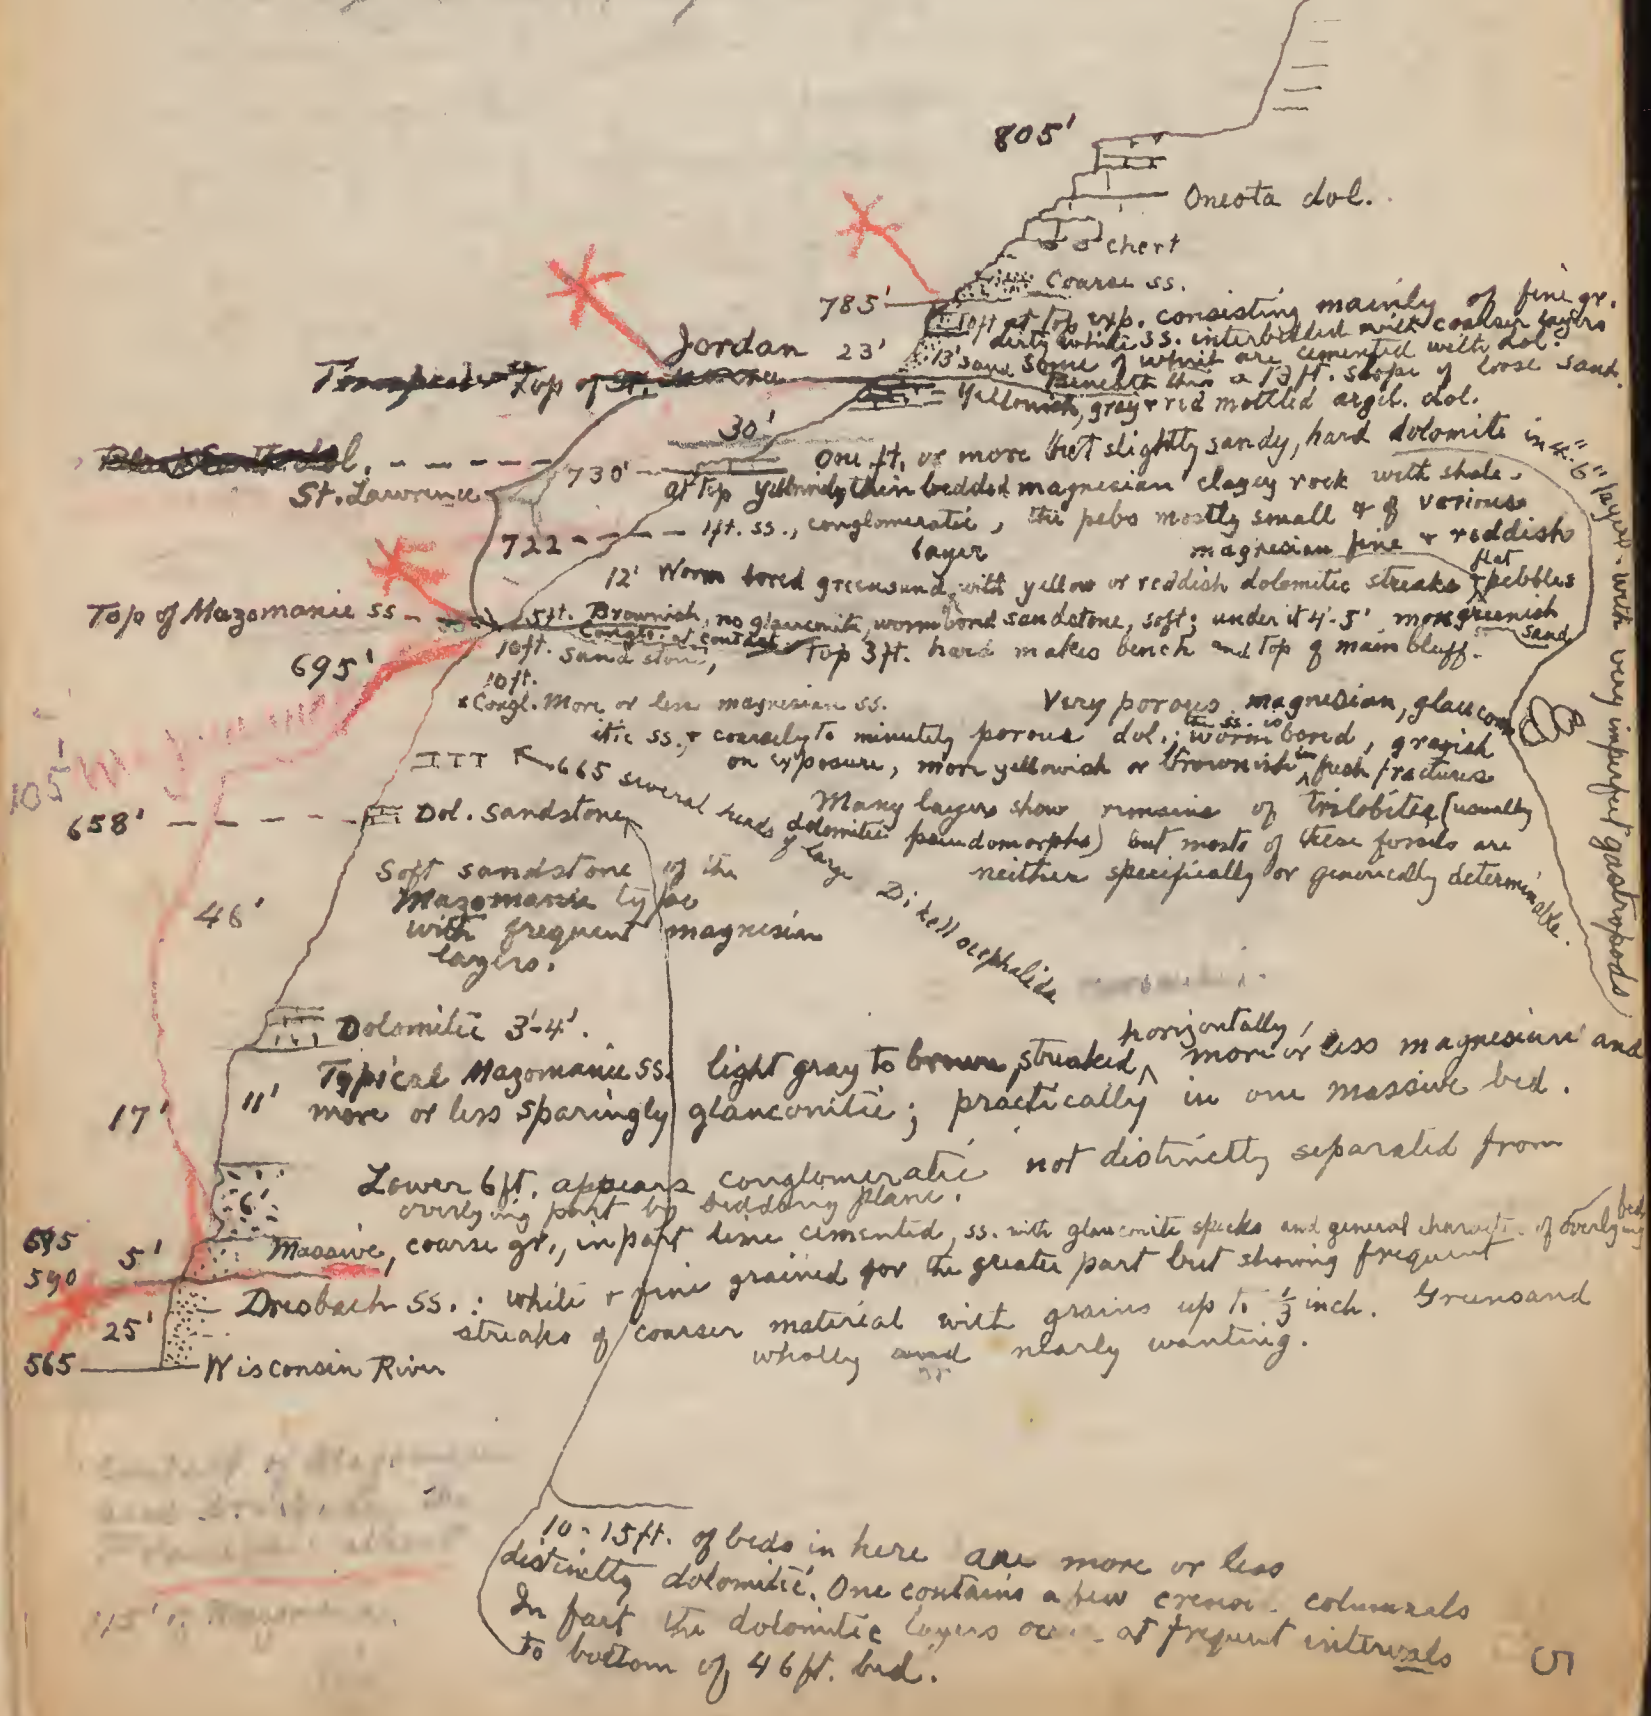 805'
Oneota dol.
chert
Coarse ss.
785'
10ft at Top exp. consisting mainly of fine gr.
dirty white ss. interbedded with coarser layers
Jordan 23'
13' sand some of which are cemented with dol.
Beneath this a 13 ft. slope of loose sand.
Top of St.
Yellowish, gray & red mottled argil. dol.
30'
dol.
St. Lawrence
730'
One ft. or more but slightly sandy, hard dolomite in 4"-6" layers with very imperfect gastropods
at Top yellowish thin bedded magnesian clayey rock with shale.
722
1ft. ss., conglomeratic, the pebs mostly small & of various
layer
magnesian fine & reddish
flat
12' Worm bored greensand with yellow or reddish dolomitic streaks & pebbles
Top of Mazomanie ss
5ft. Brownish, no glauconite, worm bored sandstone, soft; under it 4'-5' more greenish
sand
Conglo. at contact
695'
10ft. sandstone, Top 3ft. hard makes bench and top of main bluff.
10ft.
& Congl. More or less magnesian ss.
Very porous magnesian, glaucon
itic ss., & coarsely to minutely porous dol.; the ss. is worm bored, grayish
on exposure, more yellowish or brownish in fresh fractures
105'
665 several heads of large Dikellocephalids
658'
Dol. Sandstone
Many layers show remains of trilobites (usually
dolomitic pseudomorphs) but most of these fossils are
neither specifically or generically determinable.
46'
Soft sandstone of the
Mazomanie type
with frequent magnesian
layers.
Dolomitic 3'-4'.
horizontally,
17'
11'
Typical Mazomanie ss. light gray to brown, streaked more or less magnesian and
more or less sparingly glauconitic; practically in one massive bed.
6'
Lower 6ft. appears conglomeratic not distinctly separated from
overlying part by bedding plane.
695
5'
Massive, coarse gr., in part lime cemented, ss. with glauconite specks and general charact. of overlying
bed
590
25'
Dresbach ss.: white & fine grained for the greater part but showing frequent
streaks of coarser material with grains up to 1/3 inch. Greensand
wholly and nearly wanting.
or
565
Wisconsin River
10-15ft. of beds in here are more or less
distinctly dolomitic. One contains a few columnals
In fact the dolomitic layers at frequent intervals
to bottom of 46ft. bed.
5